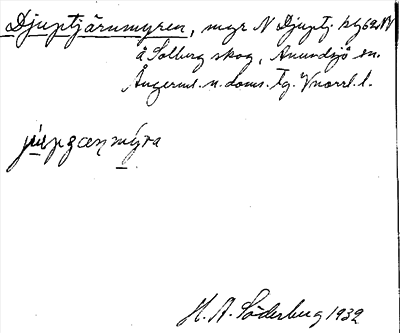 Djuptjärnmyren, myr N Djuptj. bg 62 NV
å Solberg skog, Anundsjö sn.
Ångerml. n. doms. tg. Vnorrl. l.
H. A. Söderberg 1932